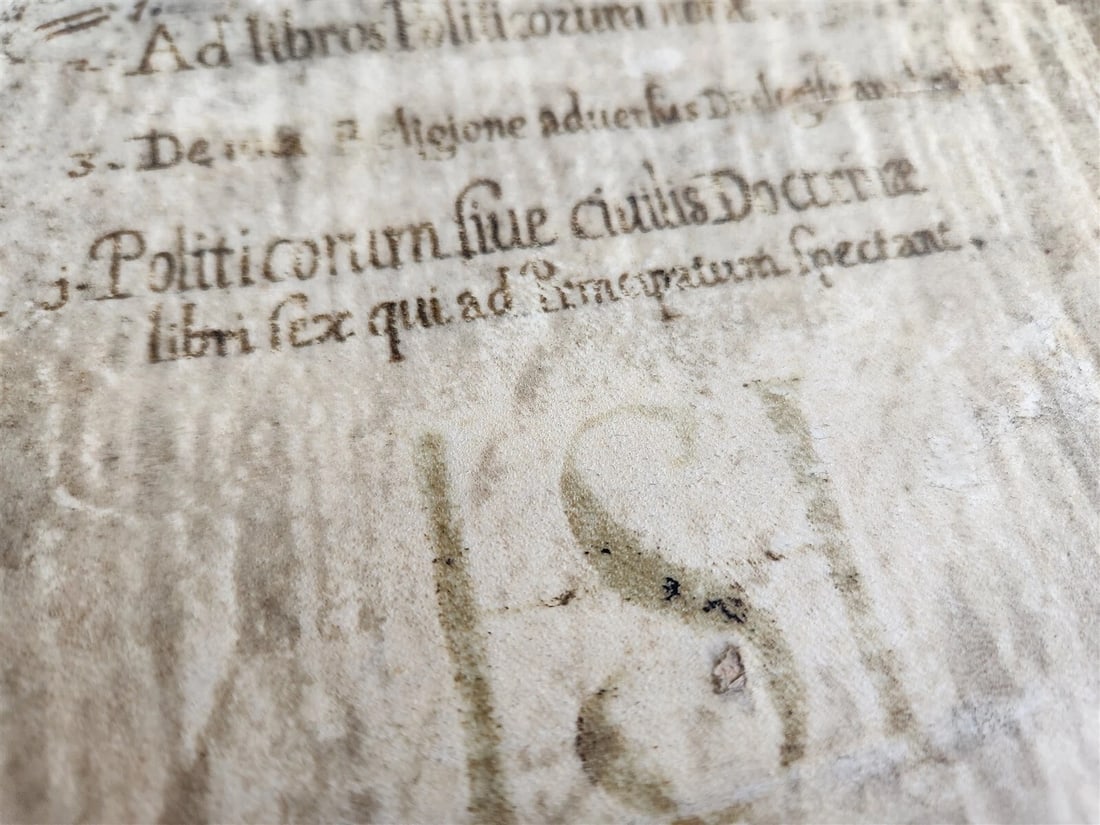 1.
2. Ad libros Politicorum notæ
3. De una religione aduerſus
j. Politicorum ſiue ciuilis Doctrinæ
libri ſex qui ad Principatum ſpectant.